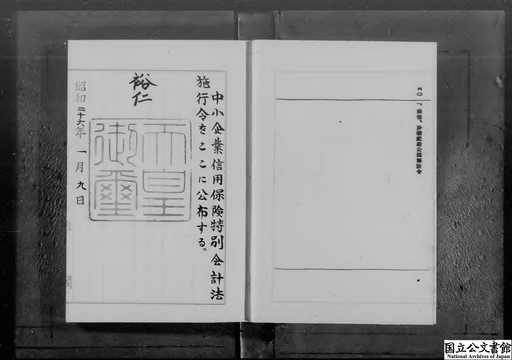 中小企業信用保険特別会計法
施行令をここに公布する。
裕仁
天皇
御璽
昭和二十六年一月九日
国立公文書館
National Archives of Japan